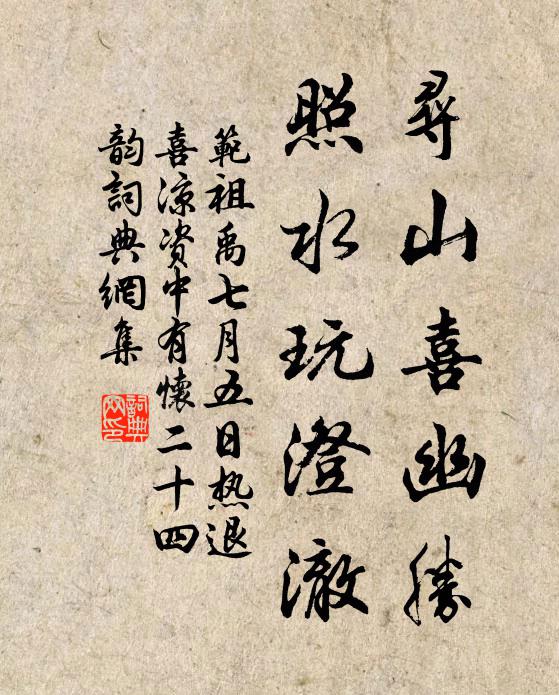 尋山喜幽勝
照水玩澄澈
範祖禹七月五日热退
喜凉资中有懷二十四
韵詞典網集
詞典網印